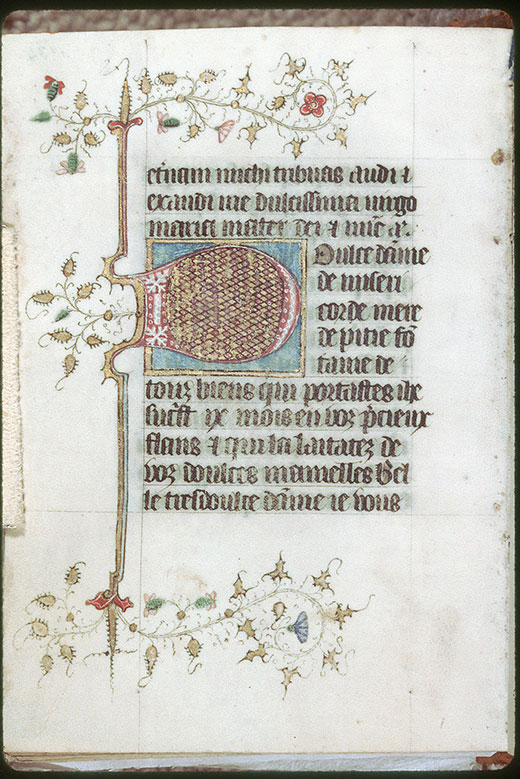 et̄nam michi tribuas audi ⁊
exaudi me dulcissima uirgo
maria mater dei ⁊ mīe a.
Oulce dāme
de miseri
corde mere
de pitie fō
taine de
touz biens qui portastes ihū
sucr̄st ix mois en voz p̄cieux
flans ⁊ qui la laitatez de
voz doulces mamelles Bel
le tresdoulce dāme ie vous